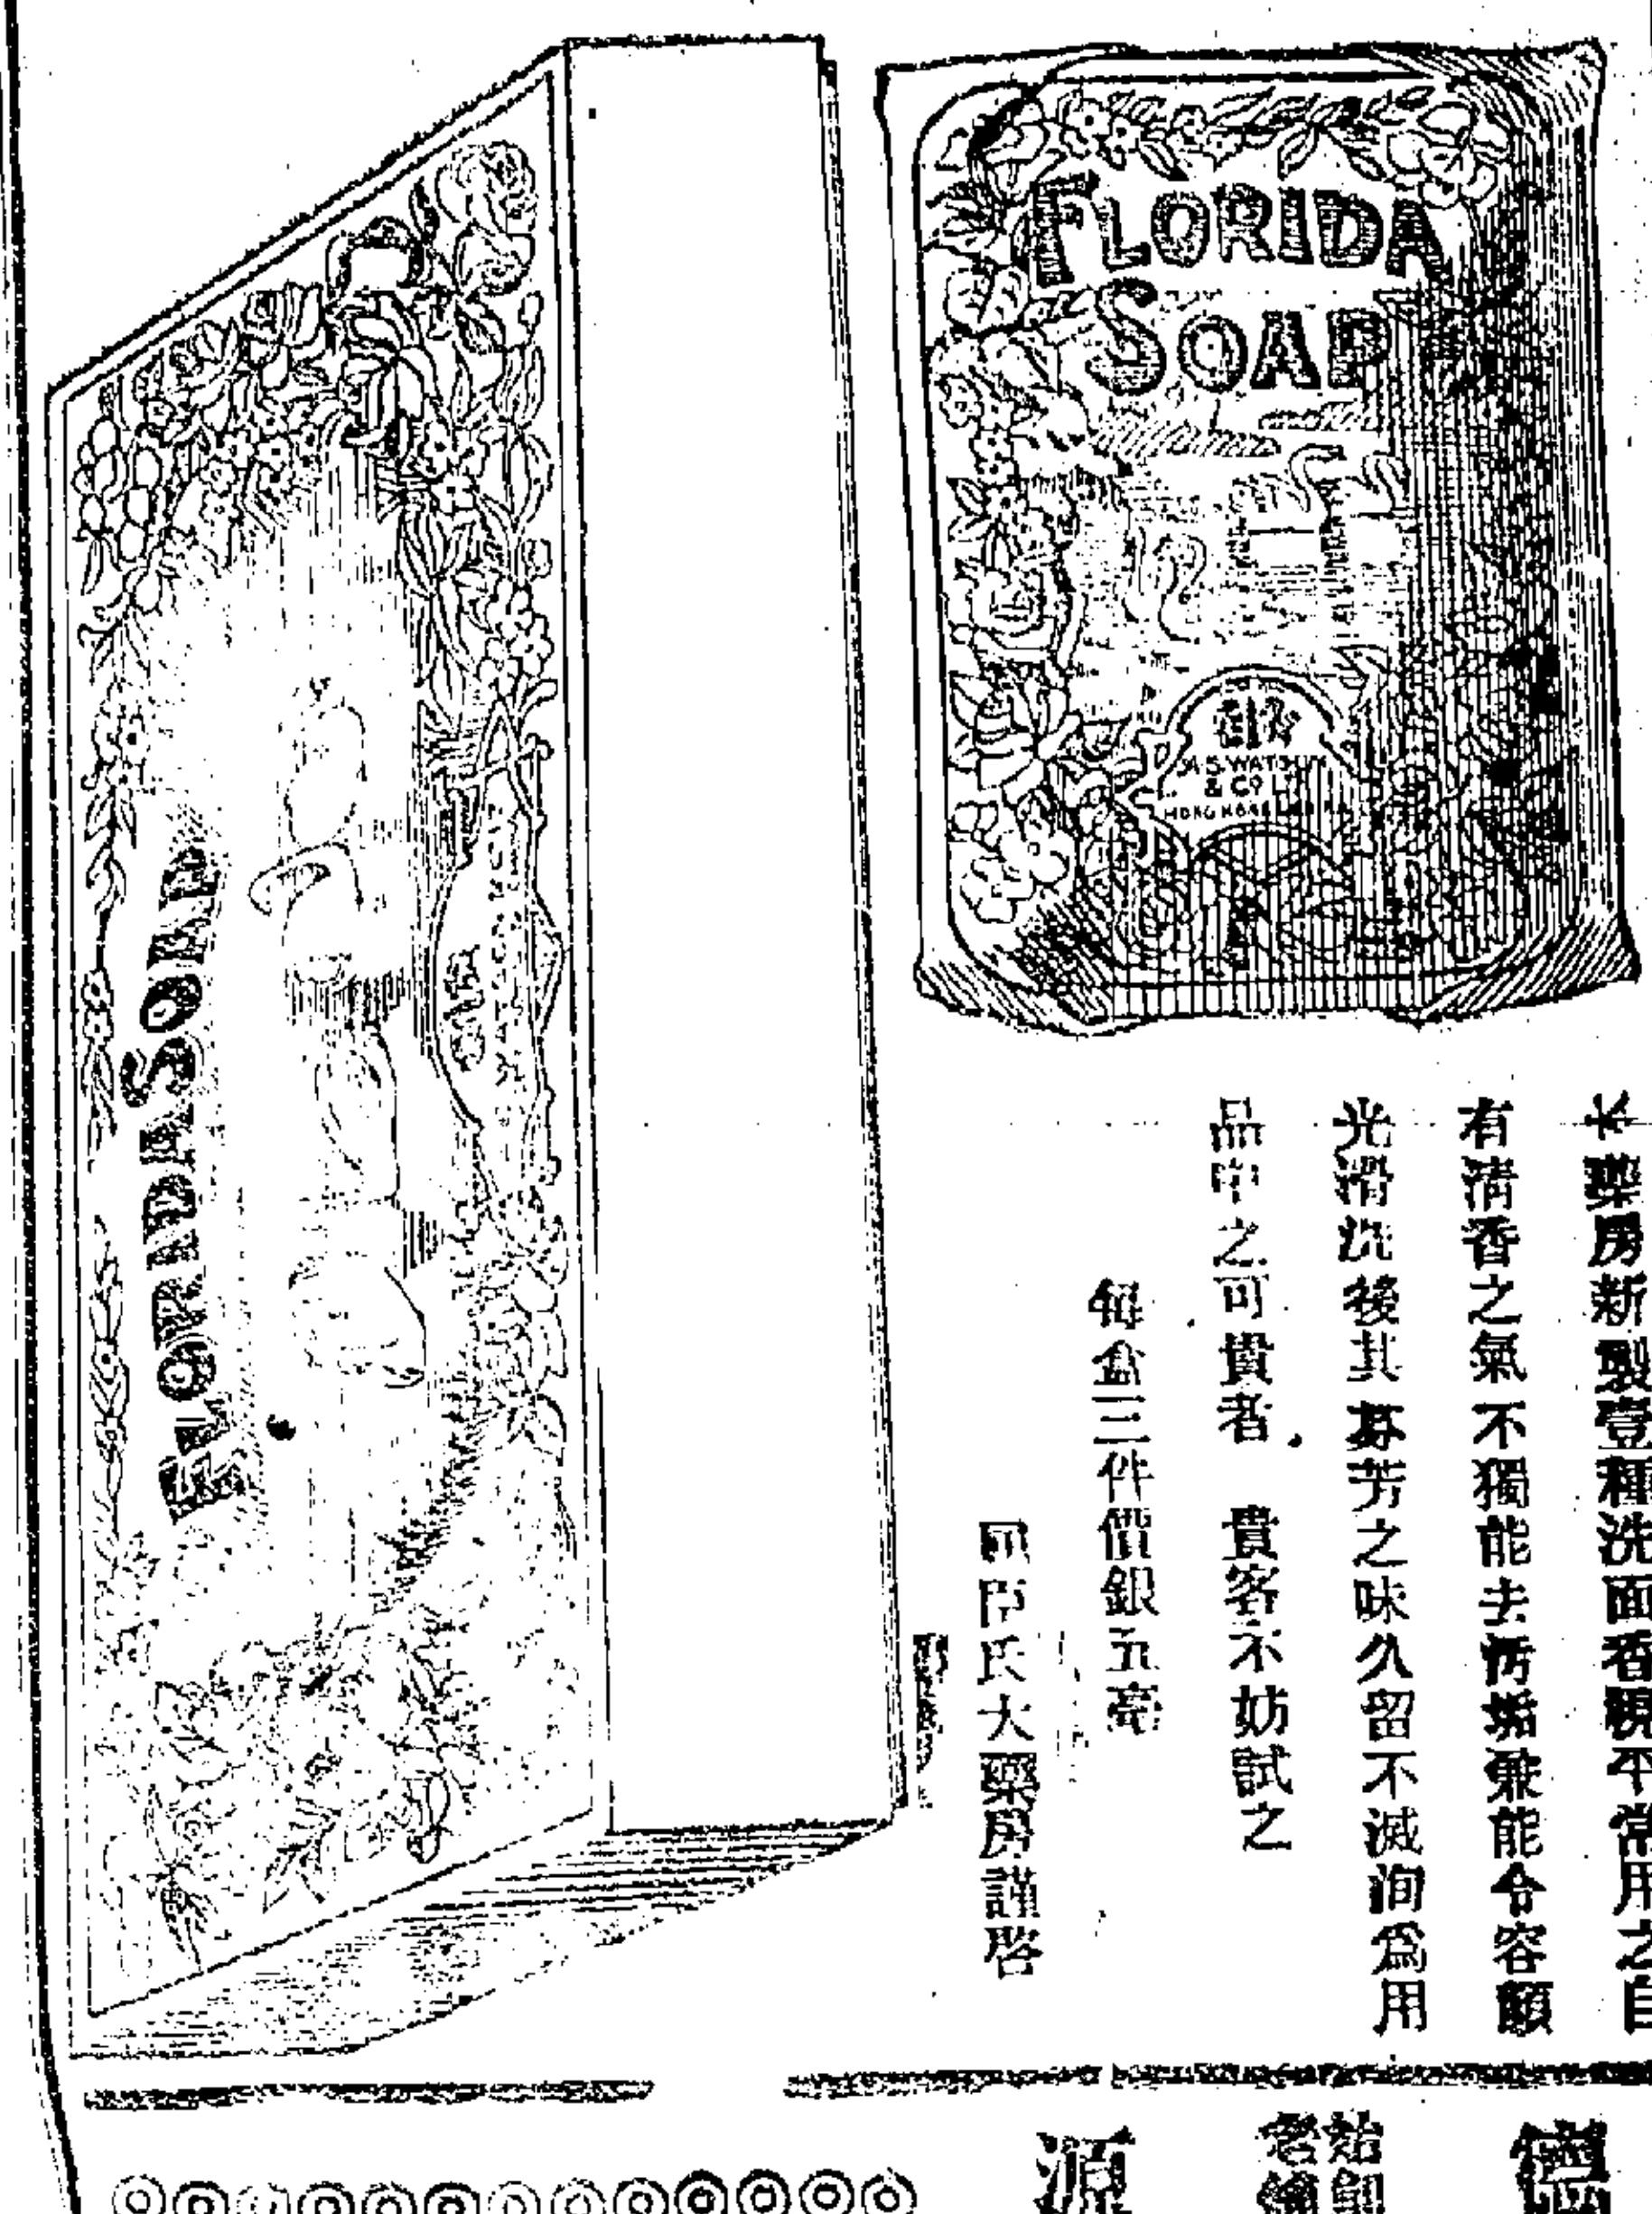 FLORIDA
SOAP
A.S. WATSON
& CO LD
HONG KONG
FLORIDA SOAP
藥房新製壹種洗面香梘平常用之自
有清香之氣不獨能去污垢兼能令容顏
光滑洗後其芬芳之味久留不滅洵為用
品中之可貴者 貴客不妨試之
每盒三件價銀五毫
屈臣氏大藥房謹啓
德
始創
老舖
源